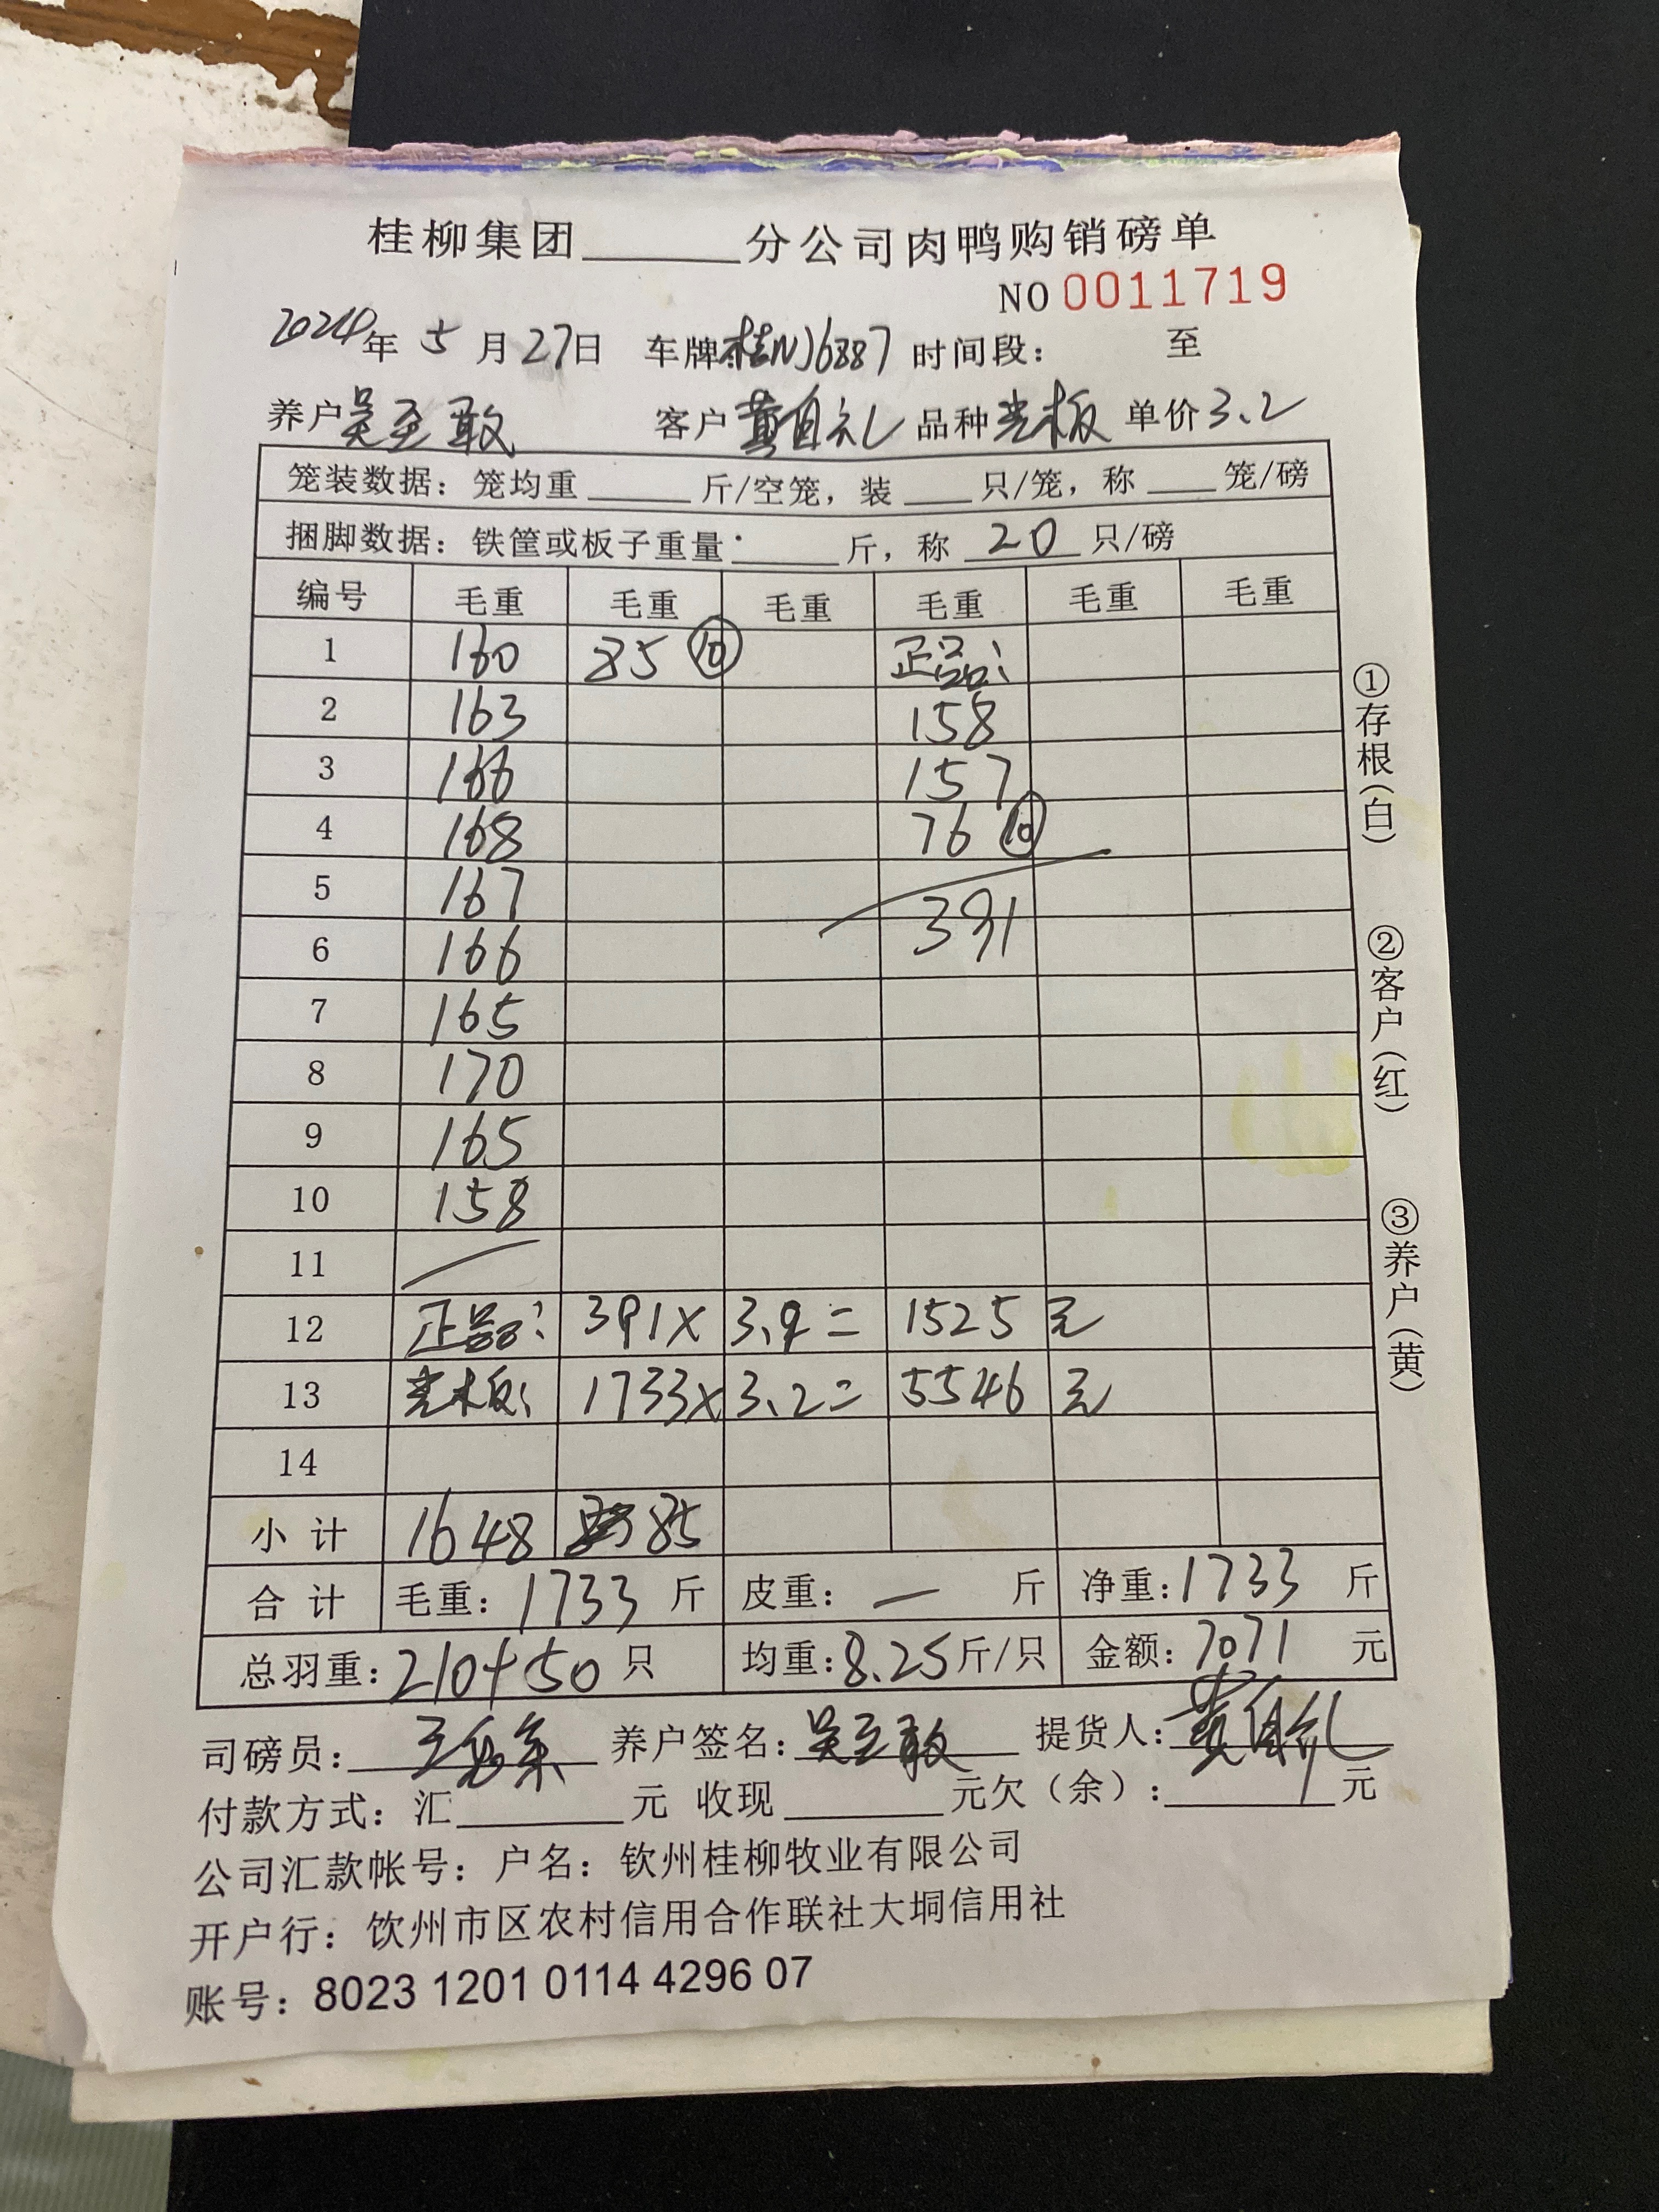 桂柳集团______分公司肉鸭购销磅单
NO 0011719
2024年 5 月 27日 车牌 桂NJ6887 时间段： 至
养户 吴至敢 客户 黄自礼 品种 光板 单价 3.2
笼装数据：笼均重______斤/空笼，装____只/笼，称____笼/磅
捆脚数据：铁筐或板子重量______斤，称 20 只/磅
编号 毛重 毛重 毛重 毛重 毛重 毛重
1 160 85 ⑩ 正品：
2 163 158
3 166 157
4 168 76 ⑩
5 167
6 166 391
7 165
8 170
9 165
10 158
11
12 正品： 391× 3.9＝ 1525 元
13 光板： 1733× 3.2＝ 5546 元
14
小 计 1648 85
合 计 毛重：1733 斤 皮重：— 斤 净重：1733 斤
总羽重：210+50 只 均重：8.25斤/只 金额：7071 元
司磅员： 养户签名：吴至敢 提货人：黄自礼
付款方式：汇______元 收现______元欠（余）：______元
公司汇款帐号：户名：钦州桂柳牧业有限公司
开户行：钦州市区农村信用合作联社大垌信用社
账号：8023 1201 0114 4296 07
①存根（白）
②客户（红）
③养户（黄）